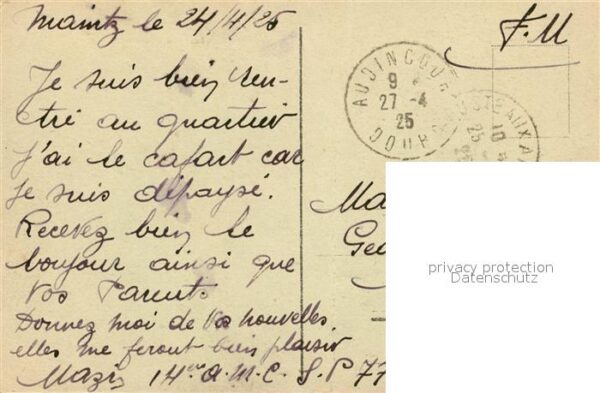 Maintz le 24/4/25
F.M
Je suis bien ren-
tré au quartier
J'ai le cafart car
je suis dépaysé.
Recevez bien le
bonjour ainsi que
Vos Parents
Donnez moi de vos nouvelles
elles me feront bien plaisir
14 A.M.C. S.P 77
AUDINCOURT
9
27 -4
25
DOUBS
10
25
Ma
Ge
privacy protection
Datenschutz